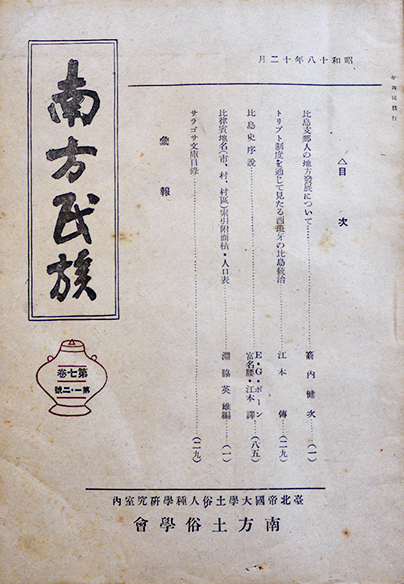 昭和十八年十二月
年四回發行
南方民族
第七卷
第一・二號
△目次
比島支那人の地方發展について……………箭内健次…(一)
トリブト制度を通じて見たる西班牙の比島統治……江本傳…(二九)
比島史序說……………E・G・ボーン
富名腰・江本譯…(八五)
比律賓地名(市・村・村區)索引附面積・人口表……淵脇英雄編…(一)
サラゴサ文庫目錄……………(二九)
彙報
臺北帝國大學土俗人種學硏究室內
南方土俗學會